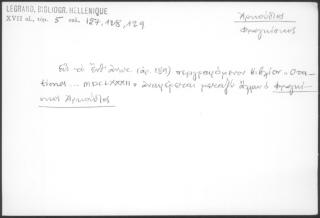 LEGRAND, BIBLIOGR. HELLENIQUE
XVII αἰ., τόμ. 5 σελ. 127, 128, 129
Ἀρκούδιος
Φραγκίσκος
Εἰς τὸ ἔνθ' ἄνω (ἀρ. 159) περιγραφόμενον βιβλίον « Ora-
tiones ... MDCLXXXII » ἀναφέρεται μεταξὺ ἄλλων ὁ Φραγκί-
σκος Ἀρκούδιος